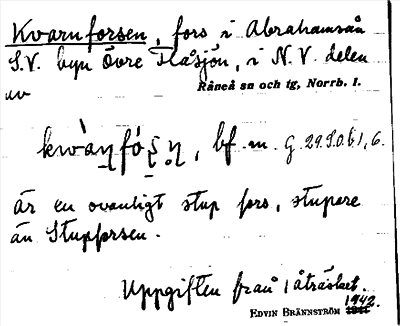 Kvarnforsen, fors i Abrahamsån
S.V. byn Övre Flåsjön, i N.V. delen
av Råneå sn och tg, Norrb. l.
bf. m. G. 29.9.0.b.1, 6.
är en ovanligt stup fors, stupare
än Stupforsen.
Uppgiften från Låträsket.
EDVIN BRÄNNSTRÖM 1942.